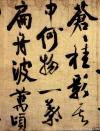 蒼蒼桂影其
中何物一葉
扁舟波萬頃